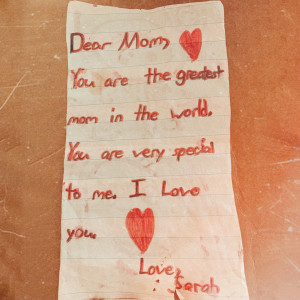 Dear Mom,
You are the greatest
mom in the world.
You are very special
to me. I Love
you.
Love,
Sarah